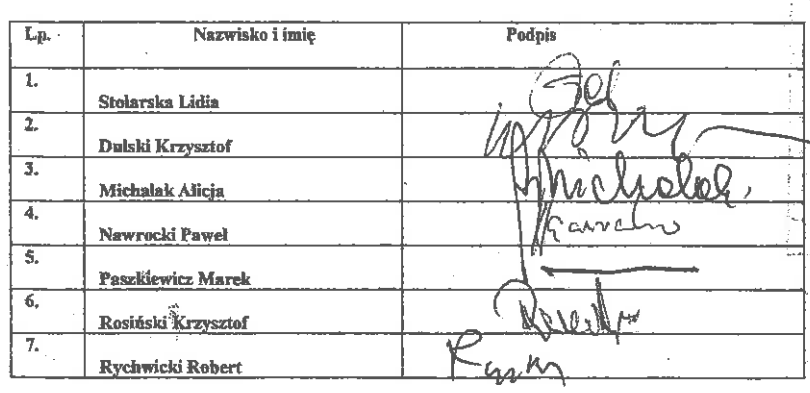 Lp. Nazwisko i imię Podpis
1. Stolarska Lidia
2. Dulski Krzysztof
3. Michalak Alicja Michalak
4. Nawrocki Paweł
5. Paszkiewicz Marek
6. Rosiński Krzysztof
7. Rychwicki Robert